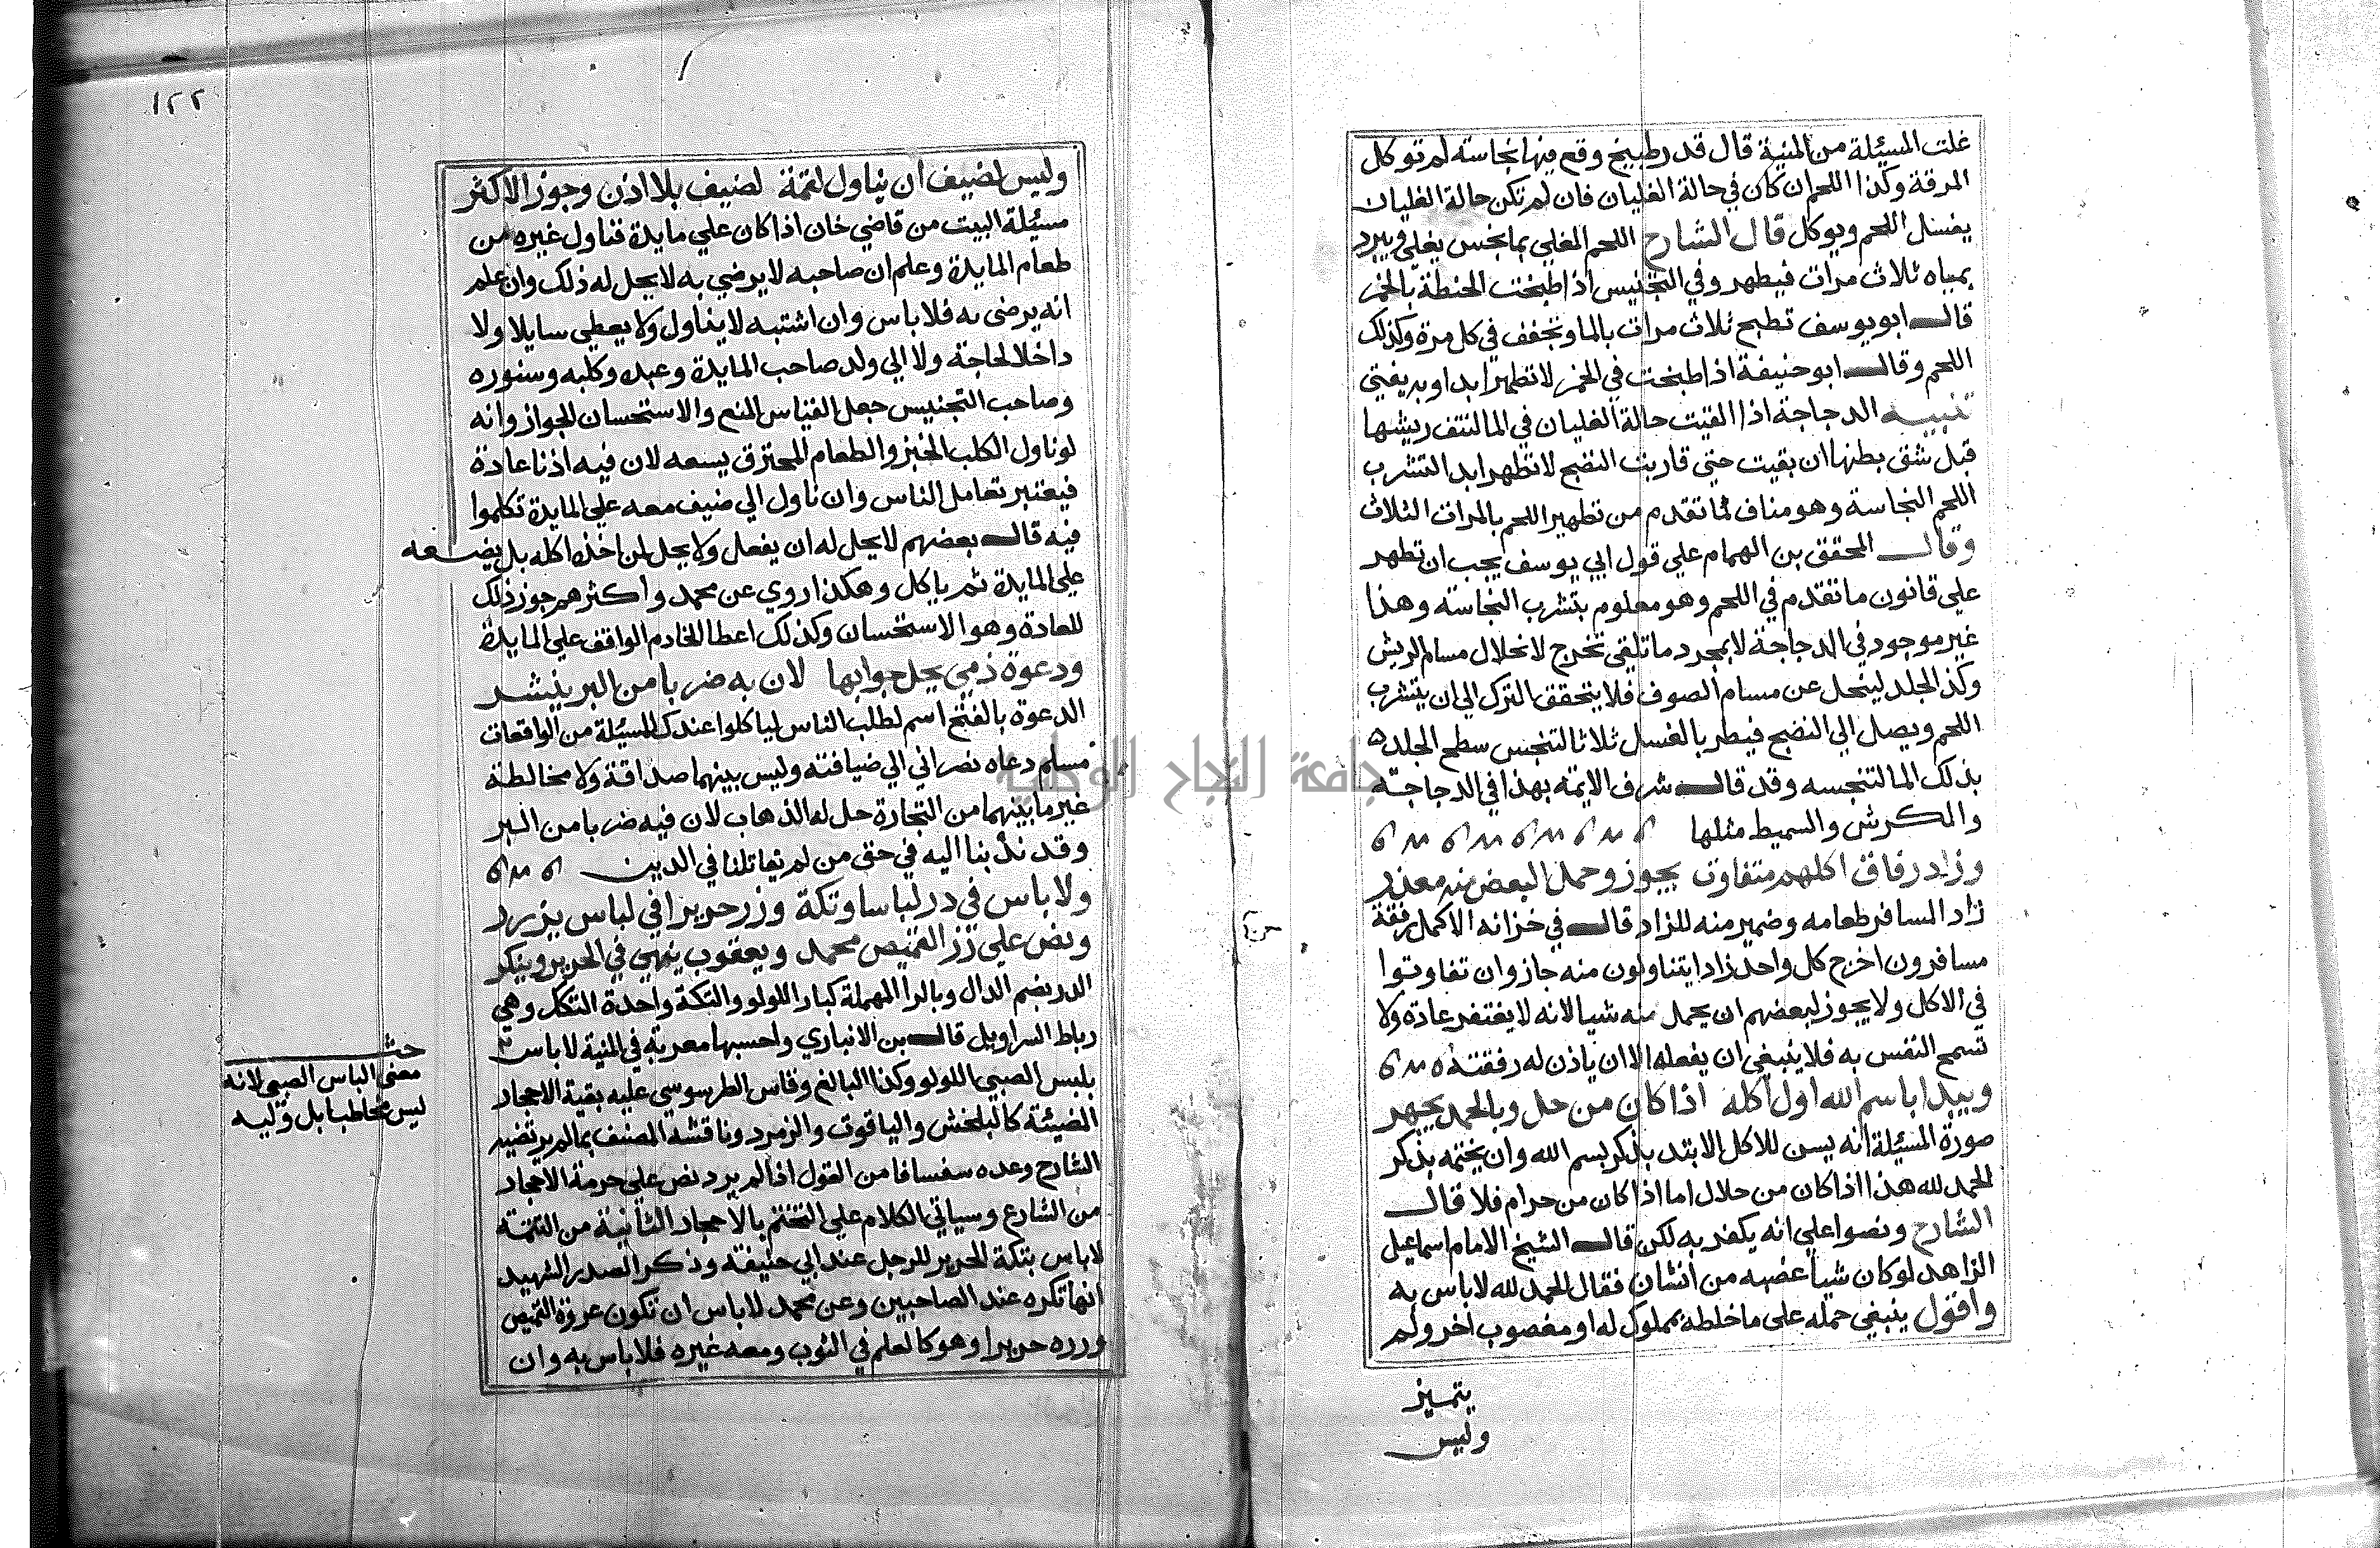 غلت المسئلة من المنية قال قدر طبيخ وقع فيها نجاسة لم توكل
المرقة وكذا اللحم ان كان في حالة الغليان فان لم تكن حالة الغليان
يغسل اللحم ويوكل قال الشارح اللحم المغلي بما نجس يغلي ويبرد
بمياه ثلاث مرات فيطهر وفي التجنيس اذا طبخت الحنطة بالخمر
قال ابو يوسف تطبخ ثلاث مرات بالما وتجفف في كل مرة وكذلك
اللحم وقال ابو حنيفة اذا طبخت في الخمر لا تطهر ابدا وبه يفتي
تنبيه الدجاجة اذا القيت حالة الغليان في الما لنتف ريشها
قبل شق بطنها ان بقيت حتي قاربت النضج لا تطهر ابدا لتشرب
اللحم النجاسة وهو مناف لما تقدم من تطهير اللحم بالمرات الثلاث
وقال المحقق بن الهمام علي قول ابي يوسف يجب ان تطهر
علي قانون ما تقدم في اللحم وهو معلوم بتشرب النجاسة وهذا
غير موجود في الدجاجة لا بمجرد ما تلقي تخرج لانحلال مسام الريش
وكذا الجلد لينحل عن مسام الصوف فلا يتحقق الترك الي ان يتشرب
اللحم ويصل الي النضج فيطر بالغسل ثلاثا لتنجس سطح الجلد
بذلك الما لتنجسه وقد قال شرف الايمة بهذا في الدجاجة
والكرش والسميط مثلها
وزاد رفاق اكلهم متفاوت يجوز وحمل البعض منه معذر
زاد المسافر طعامه وضمير منه للزاد قال في خزانه الاكمل رفقة
مسافرون اخرج كل واحد زادا يتناولون منه جاز وان تفاوتوا
في الاكل ولا يجوز لبعضهم ان يحمل منه شيا لانه لا يغتفر عادة ولا
تسمح النفس به فلا ينبغي ان يفعله الا ان ياذن له رفقته
ويبدا باسم الله اول اكله اذا كان من حل وبالحمد يجهر
صورة المسئلة انه يسن للاكل الابتدا بذكر بسم الله وان يختمه بذكر
الحمد لله هذا اذا كان من حلال اما اذا كان من حرام فلا قال
الشارح ونصوا علي انه يكفر به لكن قال الشيخ الامام اسماعيل
الزاهد لو كان شيا غصبه من انسان فقال الحمد لله لا باس به
واقول ينبغي حمله علي ما خلطه بمملوك له او مغصوب اخر ولم
يتميز
وليس
١٢٢
وليس لضيف ان يناول لقمة لضيف بلا اذن وجوز الاكثر
مسئلة البيت من قاضي خان اذا كان علي مايدة فناول غيره من
طعام المايدة وعلم ان صاحبه لا يرضي به لا يحل له ذلك وان علم
انه يرضى به فلا باس وان اشتبه لا يناول ولا يعطي سايلا ولا
داخلا لحاجة ولا الي ولد صاحب المايدة وعبده وكلبه وسنوره
وصاحب التجنيس جعل القياس المنع والاستحسان الجواز وانه
لو ناول الكلب الخبز والطعام المحترق يسعه لان فيه اذنا عادة
فيعتبر تعامل الناس وان ناول الي ضيف معه علي المايدة تكلموا
فيه قال بعضهم لا يحل له ان يفعل ولا يحل لمن اخذ اكله بل يضعه
علي المايدة ثم ياكل وهكذا روي عن محمد واكثرهم جوز ذلك
للعادة وهو الاستحسان وكذلك اعطا الخادم الواقف علي المايدة
ودعوة ذمي يحل جوابها لان به ضربا من البر ينشر
الدعوة بالفتح اسم لطلب الناس لياكلوا عندك المسئلة من الواقعات
مسلم دعاه نصراني الي ضيافته وليس بينهما صداقة ولا مخالطة
غير ما بينهما من التجارة حل له الذهاب لان فيه ضربا من البر
وقد ندبنا اليه في حق من لم يقاتلنا في الدين
ولا باس في در لباسا وتكة وزر حريرا في لباس يزرر
ونص علي زر القميص محمد ويعقوب ينهي في الحرير وينكر
الدر بضم الدال وبالرا المهملة كبار اللولو والتكة واحدة التكك وهي
رباط السراويل قال بن الانباري واحسبها معربة في المنية لا باس
بلبس الصبي اللولو وكذا البالغ وقاس الطرسوسي عليه بقية الاحجار
المضيئة كالبلخش والياقوت والزمرد وناقشه المصنف بما لم يرتضيه
الشارح وعده سفسافا من القول اذ لم يرد نص علي حرمة الاحجار
من الشارع وسياتي الكلام علي التختم بالاحجار الثانية من التتمة
لا باس بتكة الحرير للرجل عند ابي حنيفة وذكر الصدر الشهيد
انها تكره عند الصاحبين وعن محمد لا باس ان تكون عروة القميص
وزره حريرا وهو كالعلم في الثوب ومعه غيره فلا باس به وان
معني الباس الصبي لانه
ليس مخاطبا بل وليه
جامعة النجاح الوطنية